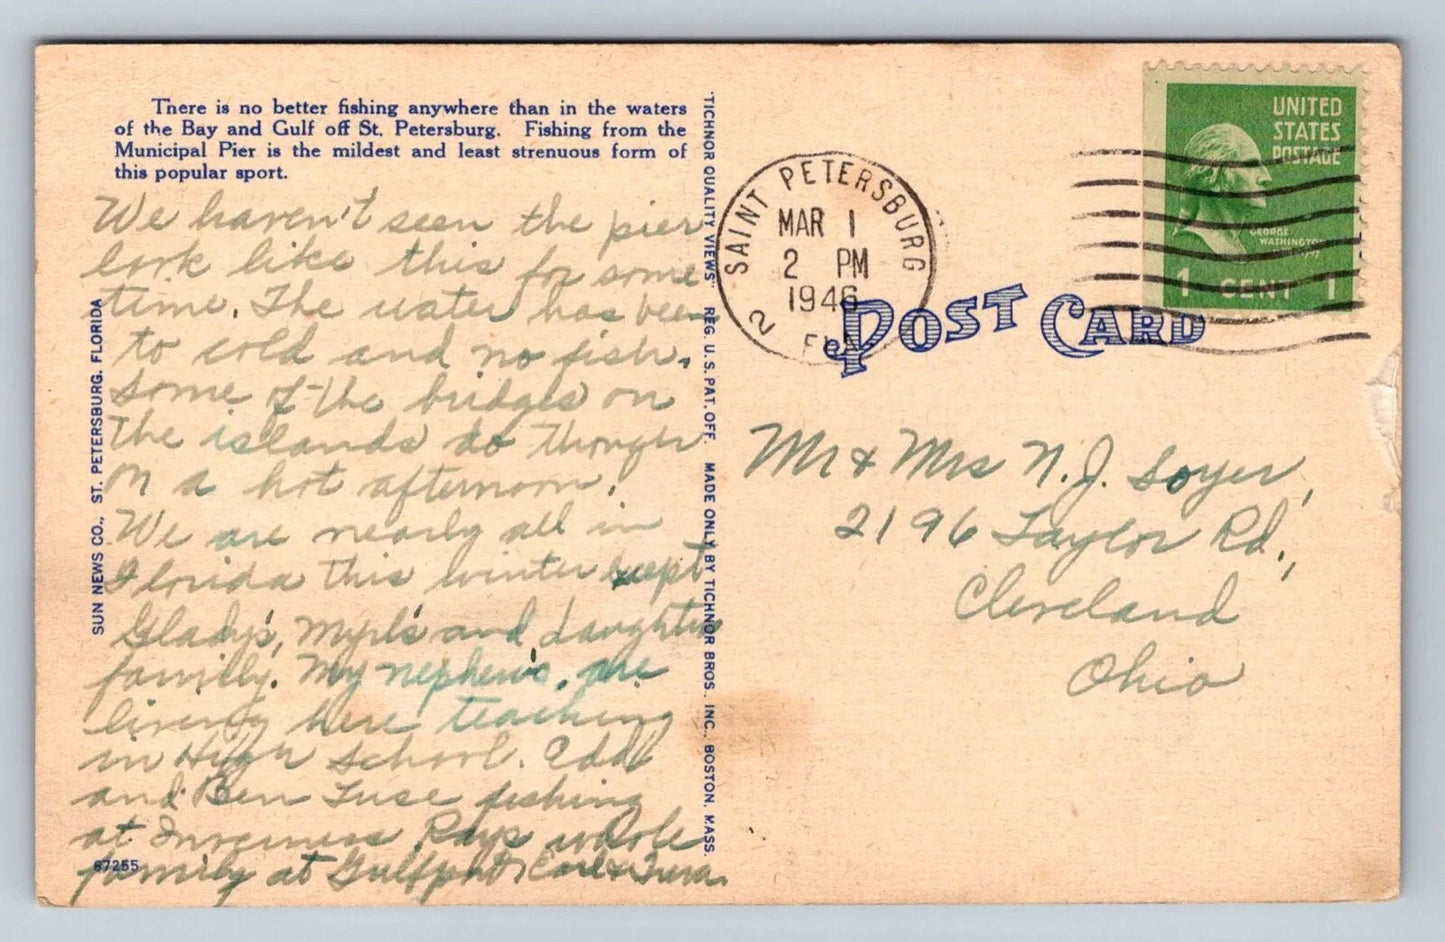 There is no better fishing anywhere than in the waters
of the Bay and Gulf off St. Petersburg. Fishing from the
Municipal Pier is the mildest and least strenuous form of
this popular sport.
We haven't seen the pier
look like this for some
time. The water has been
to cold and no fish.
Some of the bridges on
the islands do though
on a hot afternoon.
We are nearly all in
Florida this winter except
Gladys, Myrl's and daughters
family. My nephews, are
living here teaching
in High School.
and Ben fishing
at Inverness Rays whole
family at Gulfport Carl &
67255
SUN NEWS CO., ST. PETERSBURG, FLORIDA
"TICHNOR QUALITY VIEWS" REG. U. S. PAT. OFF. MADE ONLY BY TICHNOR BROS. INC., BOSTON, MASS.
SAINT PETERSBURG
MAR 1
2 PM
1946
2 FLA
UNITED
STATES
POSTAGE
GEORGE
WASHINGTON
1 CENT 1
POST CARD
Mr & Mrs N. J. Soyer,
2196 Taylor Rd.,
Cleveland
Ohio